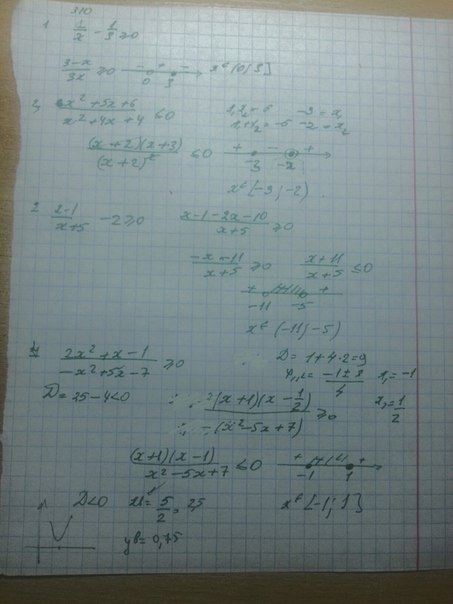 310
1. 1/x - 1/3 ≥0
3-x/3x ≥0 - + - 0 3 x∈(0;3]
2, x²+5x+6/x²+4x+4 ≤0
(x+2)(x+3)/(x+2)² ≤0 + - + -3 -2
x∈[-3;-2)
2 2-1/x+5 -2≥0 x-1-2x-10/x+5 ≥0
-x-11/x+5 ≥0 x+11/x+5 ≤0
+ + -11 -5
x∈(-11;-5)
2x²+x-1/-x²+5x-7 ≥0 D=1+4·2=9
D=25-4<0 x₁,₂= -1±3/4 x₁=-1
2(x+1)(x-1/2)/-(x²-5x+7) ≥0 x₂=1/2
(x+1)(x-1)/x²-5x+7 ≤0 + + -1 1
D<0 = 5/2 = 2,5 x∈[-1;1]
yв=0,75